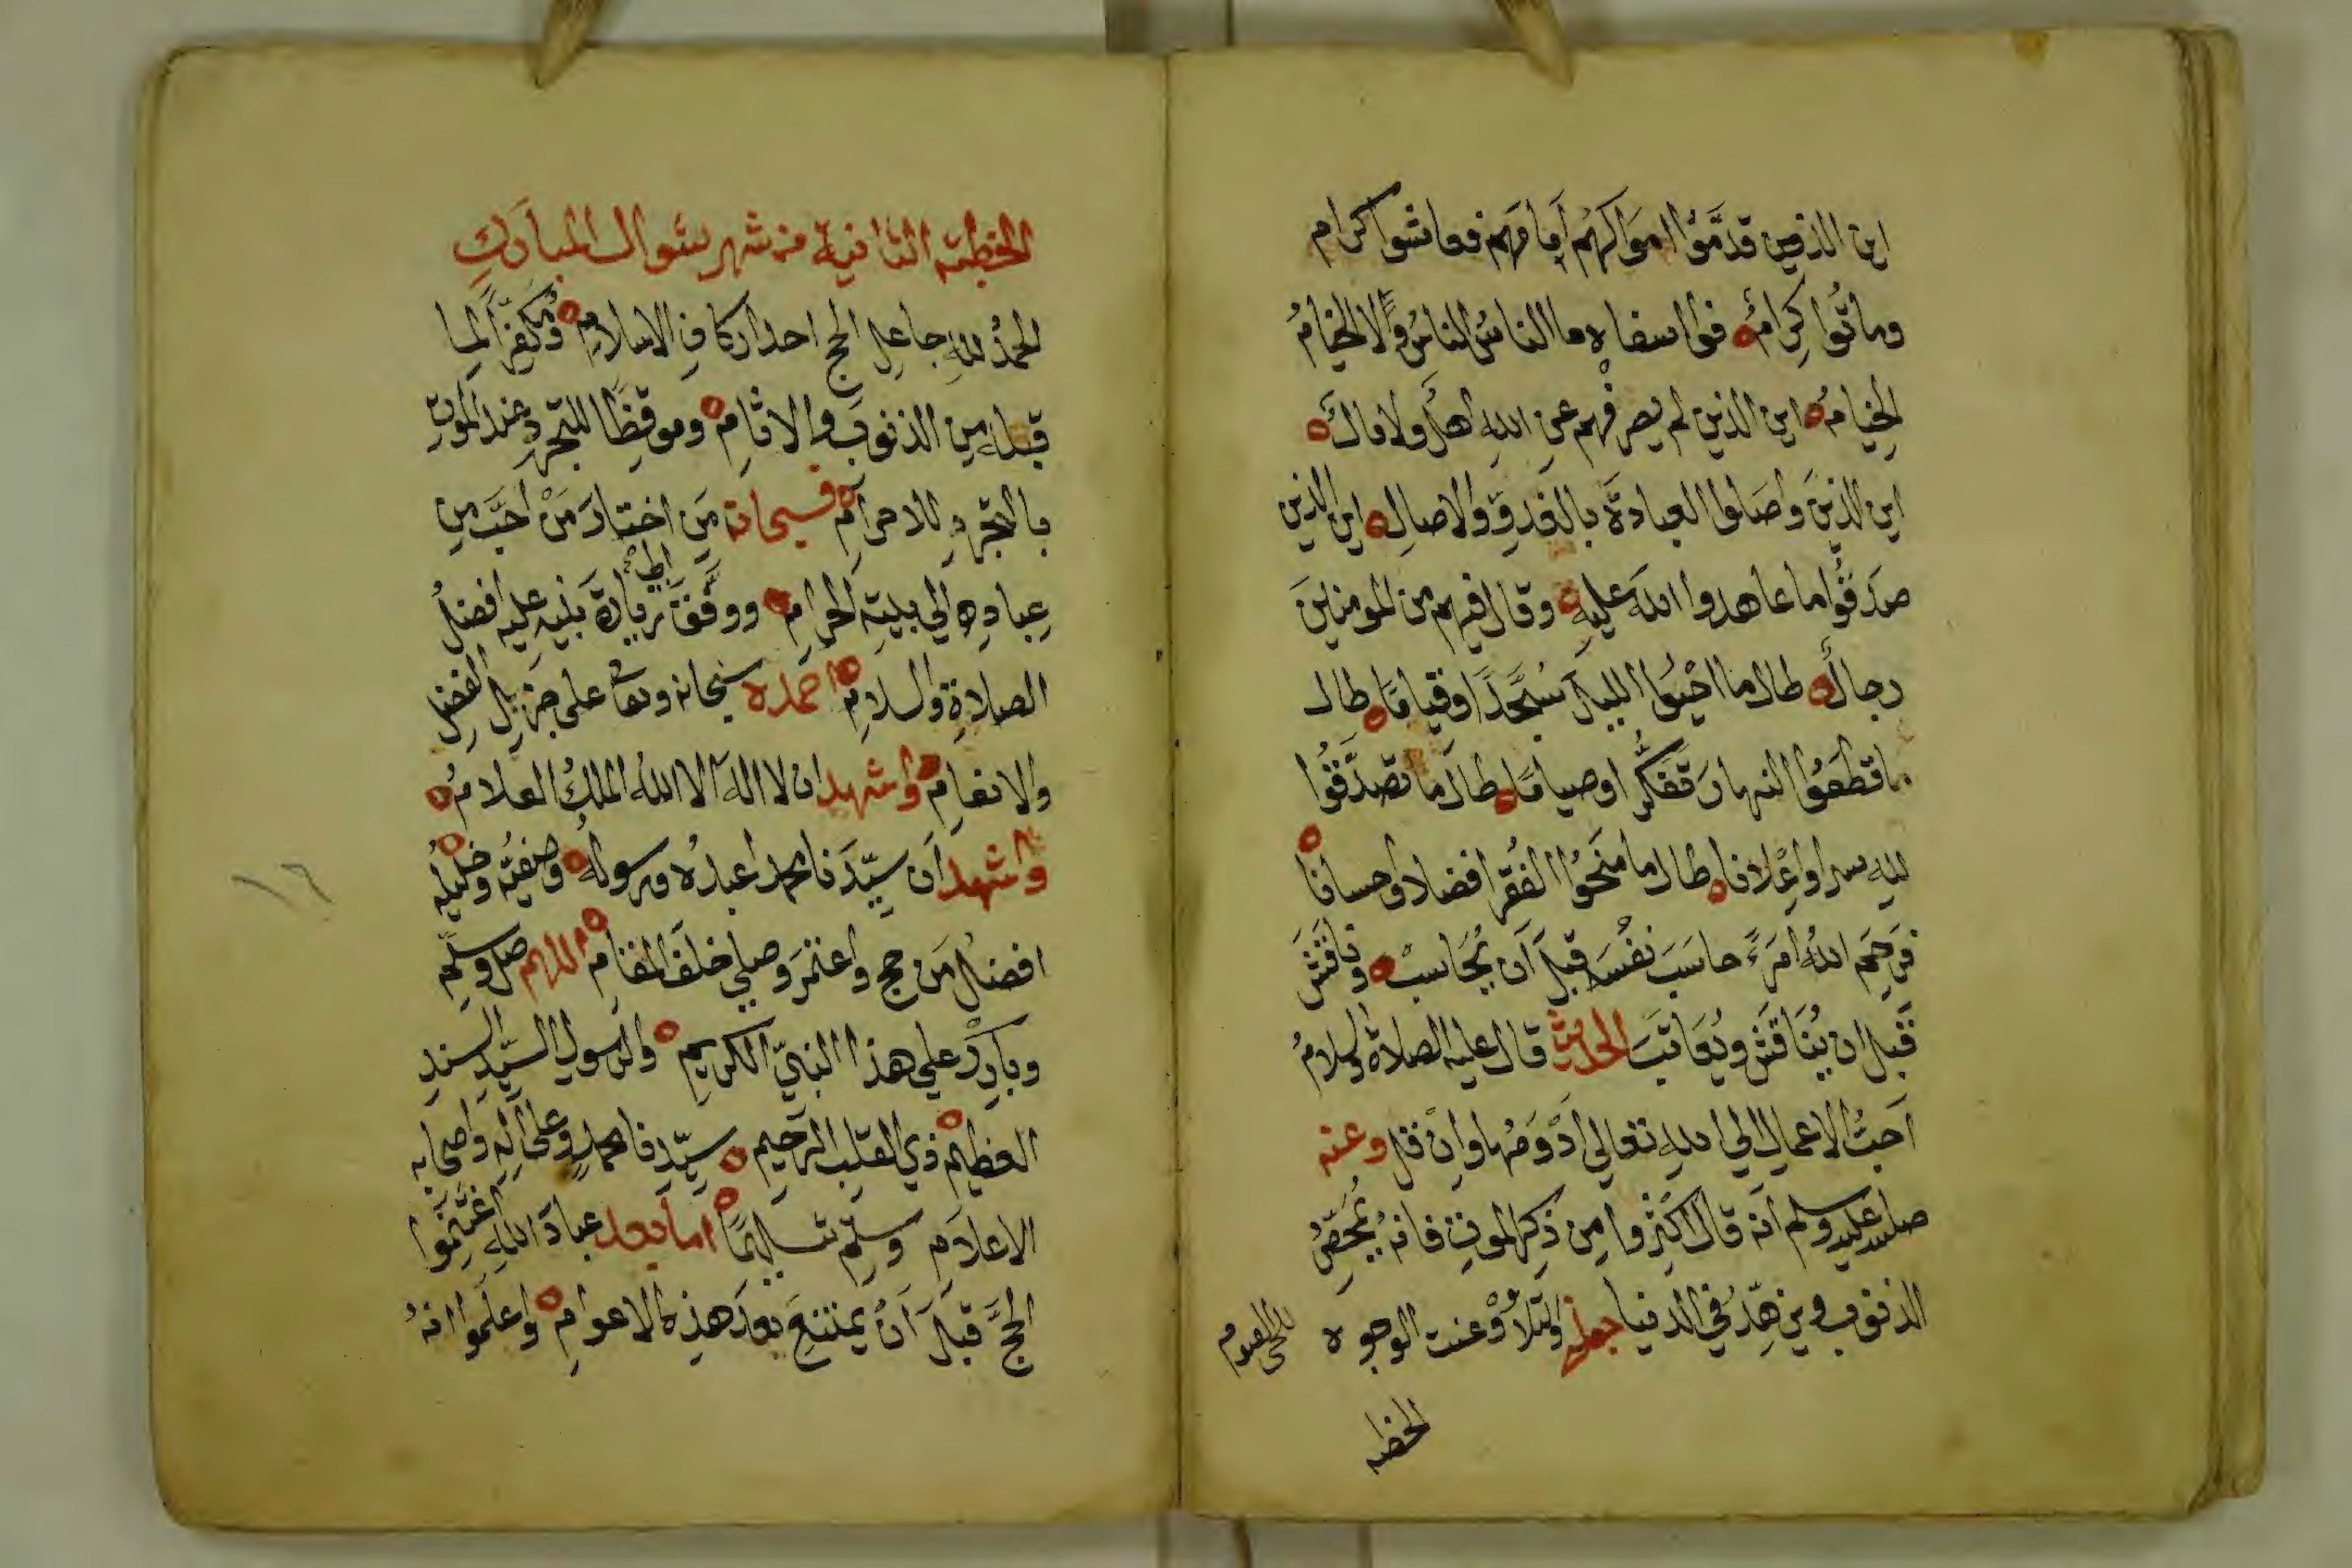 اين الذين قدَّمُوا امَوَاكهُم اَمامَهم فعاشوا كرام
وماتُوا كِرامٌ فوا اسفاه ما الناسُ الناسُ ولا الخيَامُ
الخِيَامُ اين الذين لم يصرفْهم عن اللهِ اهلٌ ولا مالٌ
اين الذينَ واصَلوا العبادةَ بالغدوِّ والاصالِ اين الذين
صدَقُوا ما عاهدوا اللهَ عليهِ وقال فيهم من المومنينَ
رجالٌ طال ما احْيَوا الليلَ سُجَّدًا وقيامًا طال
ما قطعُوا النهارَ تفكُّرا وصيامًا طالَ ما تصدَّقُوا
لله سرا واِعْلانا طال ما منَحُوا الفُقرا فضلا واحسانا
فرَحِمَ اللهُ امرَءً حاسَبَ نفسَه قبلَ اَن يُحَاسبْ وناقَشَ
قَبل ان يُنَاقَش ويُعَاتَبَ الحديث قال عليه الصلاة والسلامُ
اَحَبُّ الاعمال الي اللهِ تعالي اَدْوَمُها وانْ قل وعنه
صلي الله عليه وسلم انه قال اكثِروا مِن ذكرِ الموتِ فانه يُمَحِّصُ
الذنوب ويزهِّدُ في الدنيا جعلني ولتلاوْ وعنت الوجوه
للحي القيوم
الخطبه
الخطبة الثانية من شهر شوال المبارك
الحمدُ للهِ جاعلِ الحج احد اركان الاسلامِ ومُكفِّراً لما
قبله من الذنوب والاثامِ وموقظًا للتجرد عند الموتِ
بالتجرد للاحرامِ فسبحانه مَن اختارَ مَنْ احَبَّ من
عِبادِهِ الي بيتِه الحرامِ ووفَّقَ الي زيارة نبيه عليه افضلُ
الصلاةِ والسلامِ احمده سبحانه وتعا على جزيل الفضلِ
والانعامِ واشهد ان لا اله الا الله الملكُ العلامُ
واشهد اَن سيّدَنا محمدا عبدُه ورسولُه وصفيُّه وخليلُه
افضلُ مَن حج واعتمرَ وصلي خلفَ المقامِ اللهم صل وسلم
وبارِكْ علي هذا النبيِّ الكريمِ والرسولِ السيّدِ السندِ
العظيمِ ذي القلبِ الرحيمِ سيّدِنا محمدٍ وعلي الهِ واصحابه
الاعلامِ وسلم تسليمًا اما بعد عبادَ اللهِ اغتَنِمُوا
الحجَّ قبلَ اَنْ يمتنِعَ بعدَ هذه الاعوامِ واعلَموا انهُ
١٦